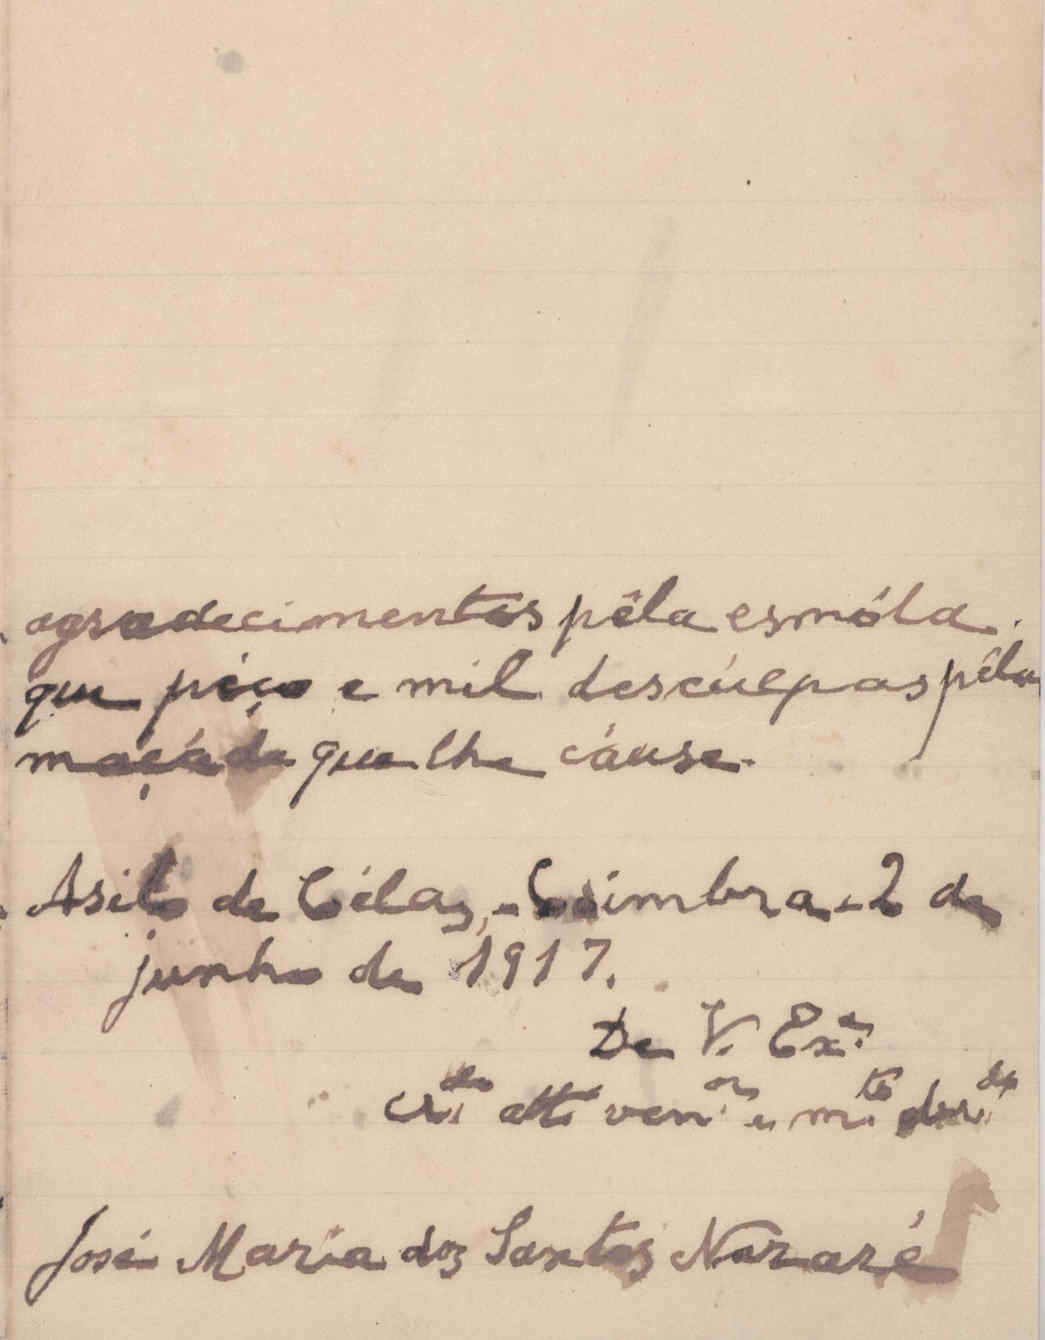 agradecimentos pêla esmóla
que péço e mil descúlpas pêla
maçáda que lhe cáuse.
Asilo de Célas, - Coimbra - 2 de
junho de 1917.
De V. Exª.
cr.do att.º ven.or e m.to
José Maria dos Santos Nazaré